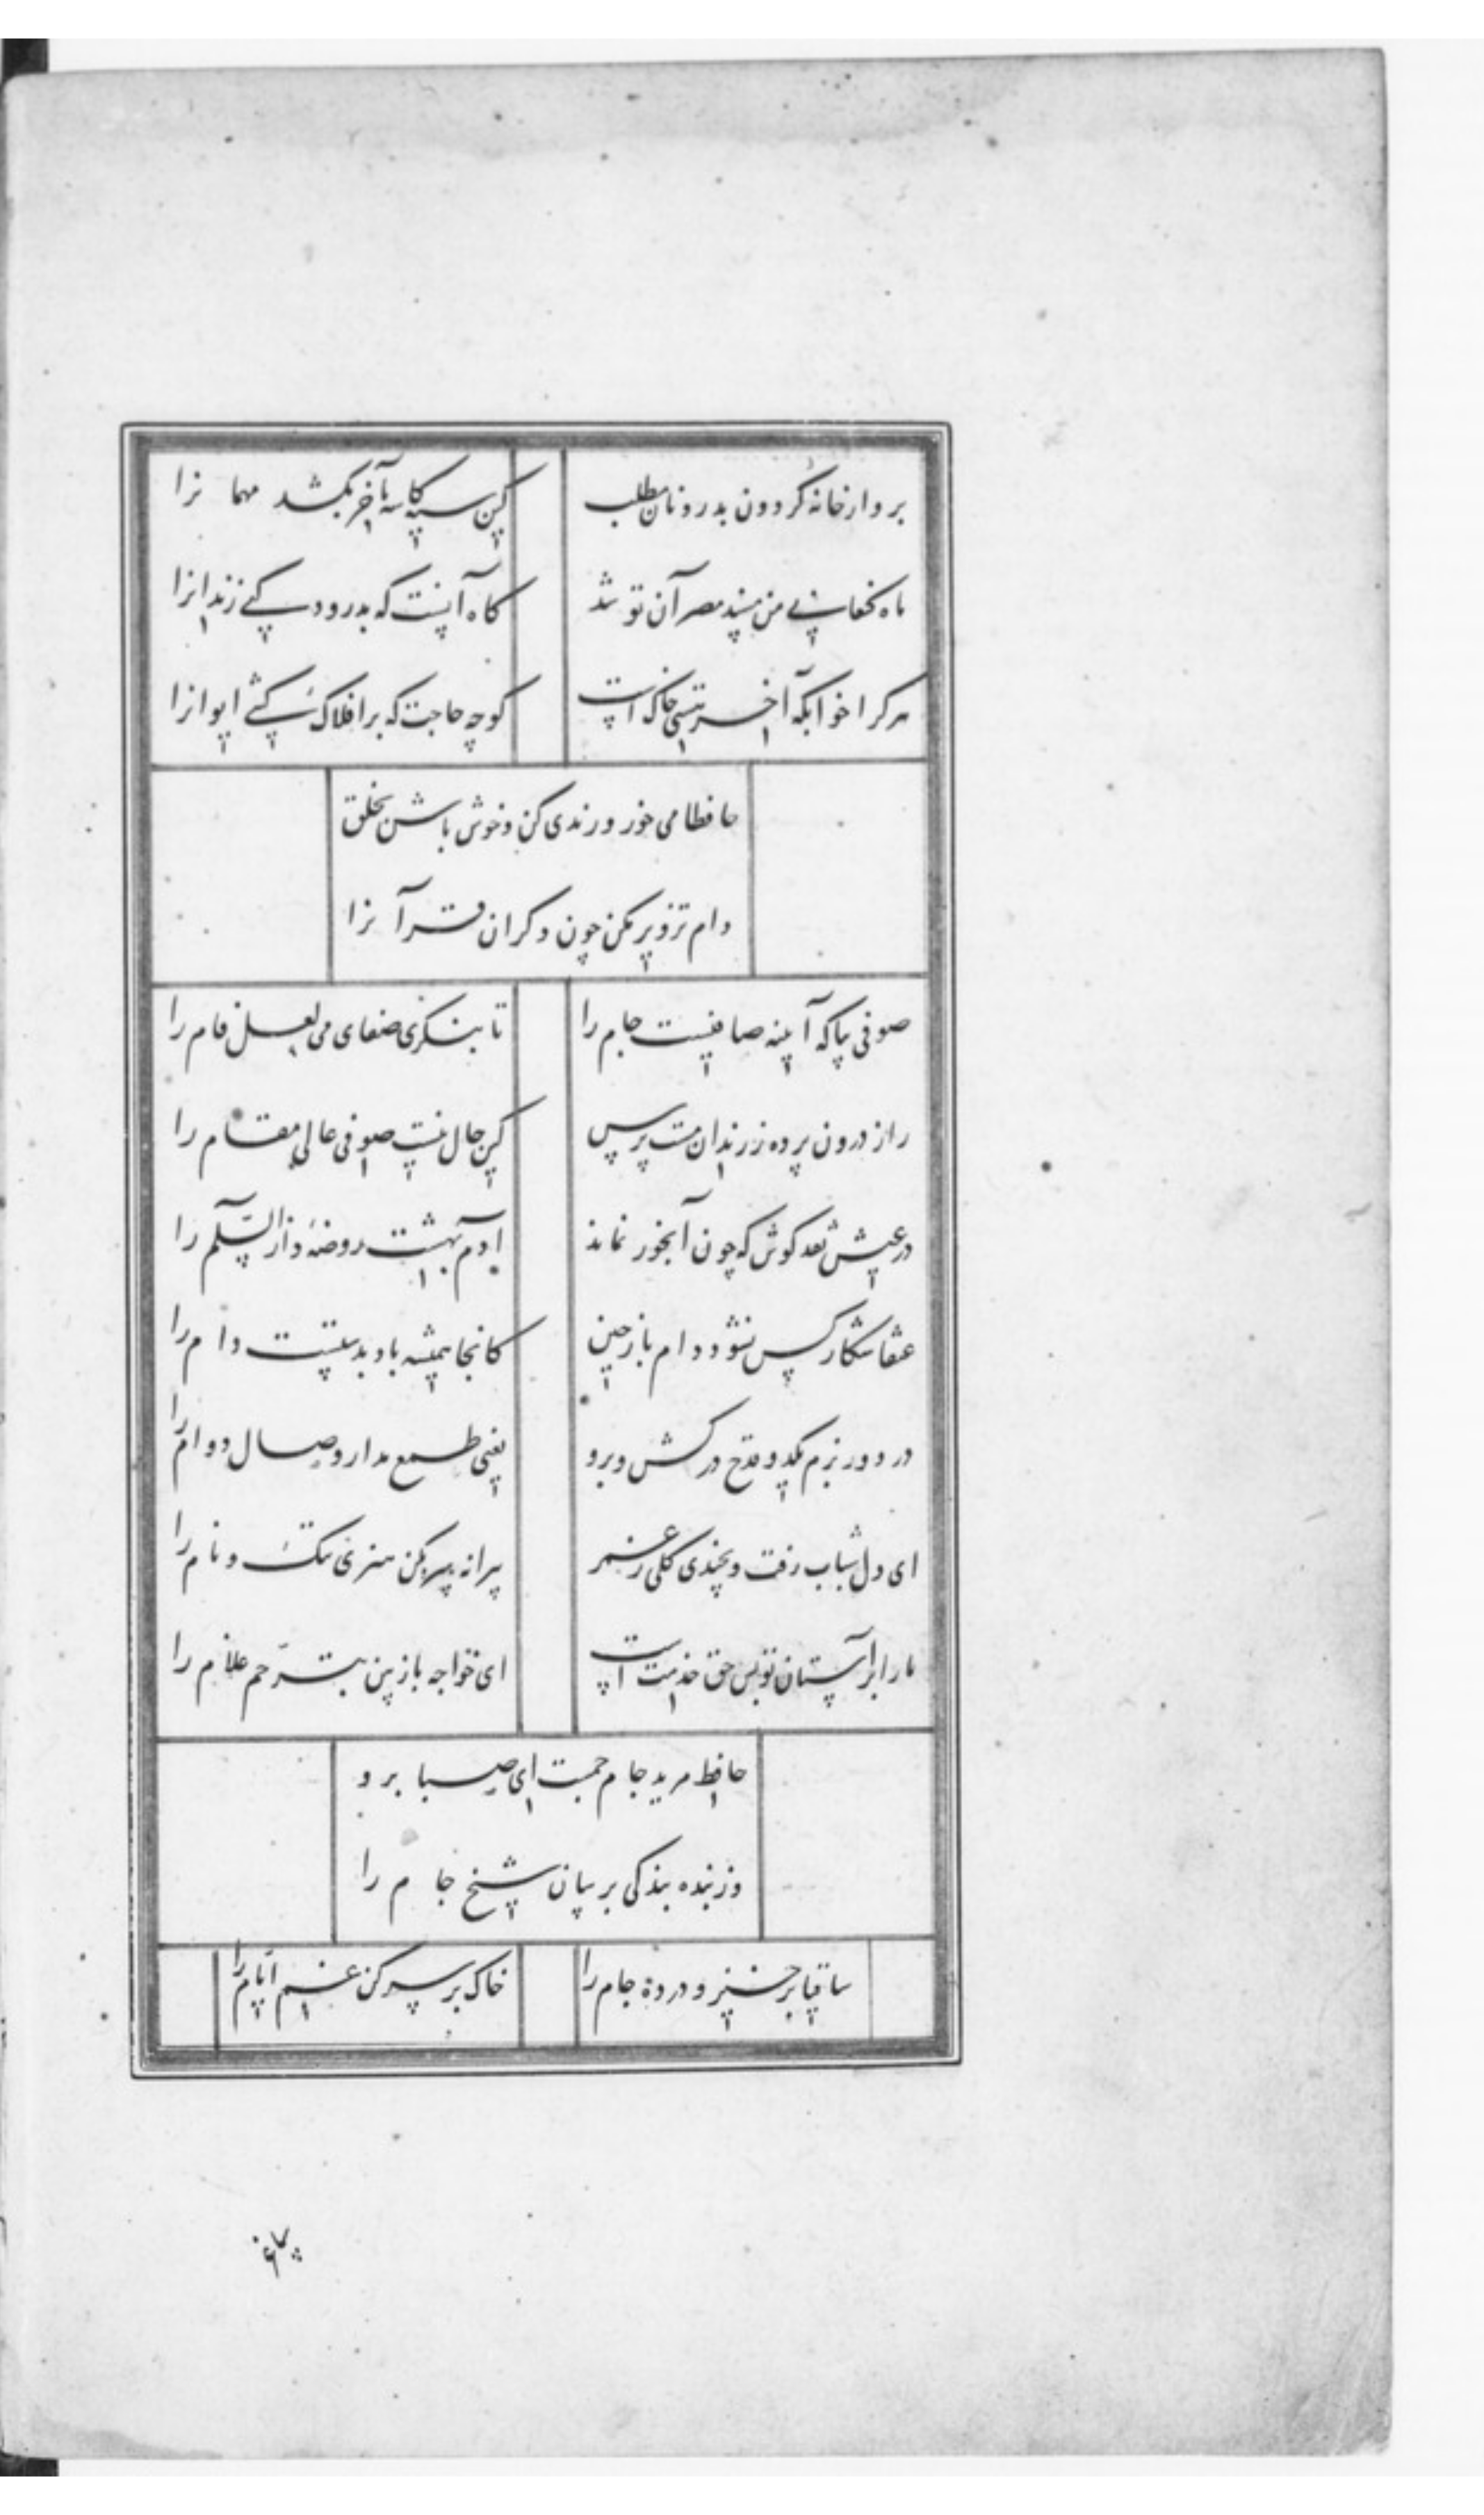 برو از خانهٔ گردون بدر و نان مطلب
کین سیه کاسه بآخر بکشد مهمانرا
ماه کنعانی من مسند مصر آن تو شد
گاه آنست که بدرود کنی زندانرا
هر کرا خوابگه آخر نه مشتی خاک است
گو چه حاجت که بر افلاک کشی ایوانرا
حافظا می خور و رندی کن و خوش باش بخلق
دام تزویر مکن چون دگران قرآنرا
صوفی بیا که آینه صافیست جام را
تا بنگری صفای می لعل فام را
راز درون پرده ز رندان مست پرس
کین حال نیست صوفی عالی مقام را
در عیش نقد کوش که چون آبخور نماند
آدم بهشت روضهٔ دار السّلم را
عنقا شکار کس نشود دام باز چین
کانجا همیشه باد بدستست دام را
در دور بزم یکدو قدح در کش و برو
یعنی طمع مدار وصال دوام را
ای دل شباب رفت و نچیدی گلی ز عمر
پیرانه سر بکن هنری ننگ و نام را
ما را بر آستان تو بس حق خدمت است
ای خواجه باز بین بترّحم غلام را
حافظ مرید جام جمست ای صبا برو
وز بنده بندگی برسان شیخ جام را
ساقیا برخیز و درده جام را
خاک بر سر کن غم ایّام را